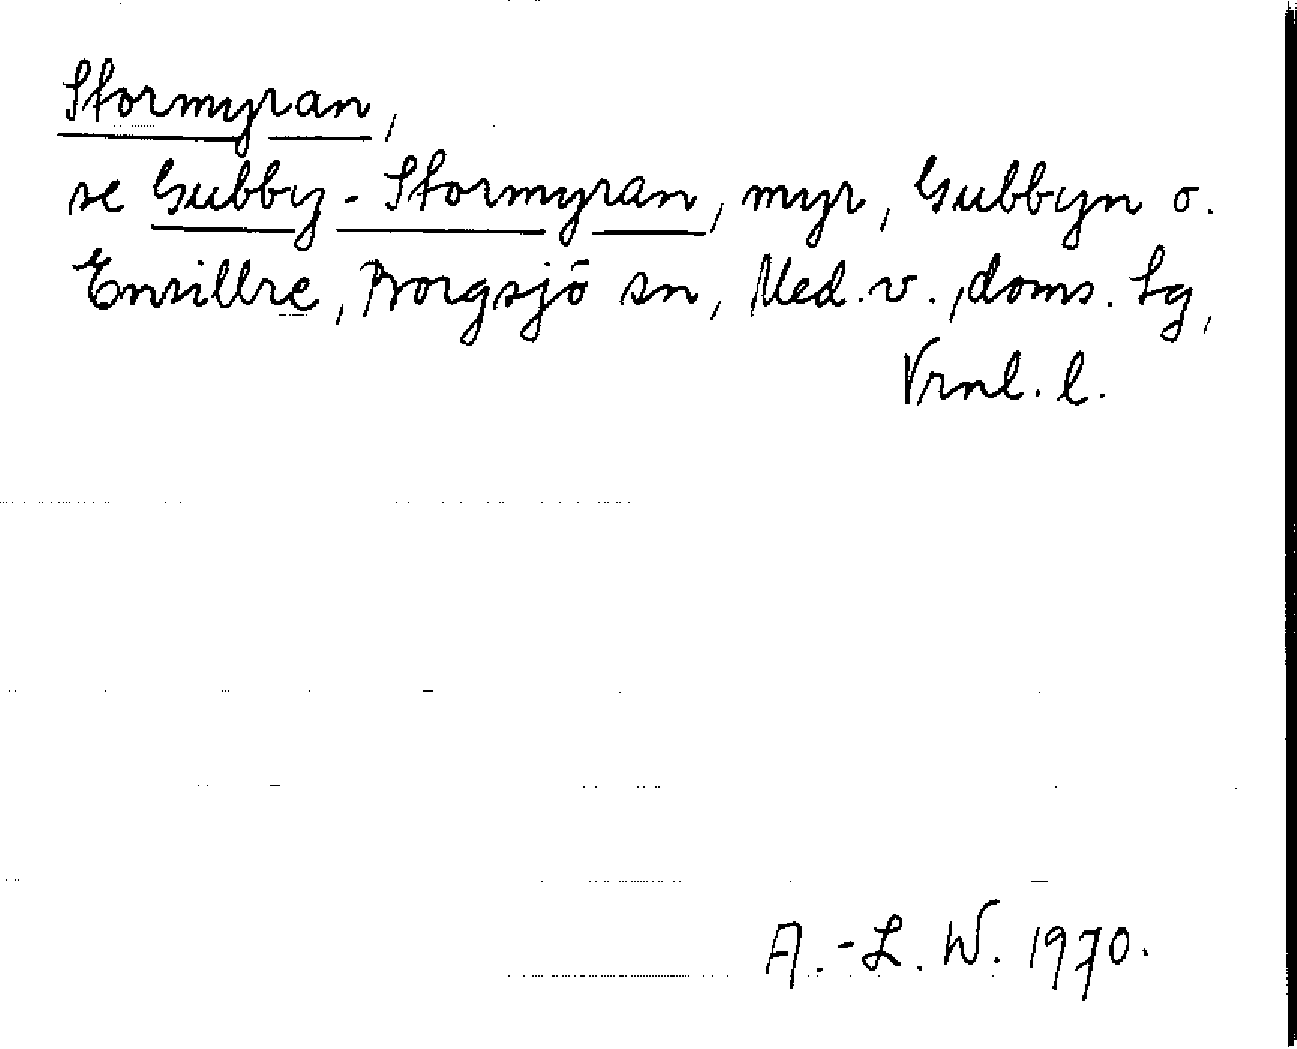 Stormyran,
se Gubby-Stormyran, myr, Gubbyn o.
Ensillre, Borgsjö sn, Med. v., doms. lg,
Vrnl. l.
A.-L. W. 1970.